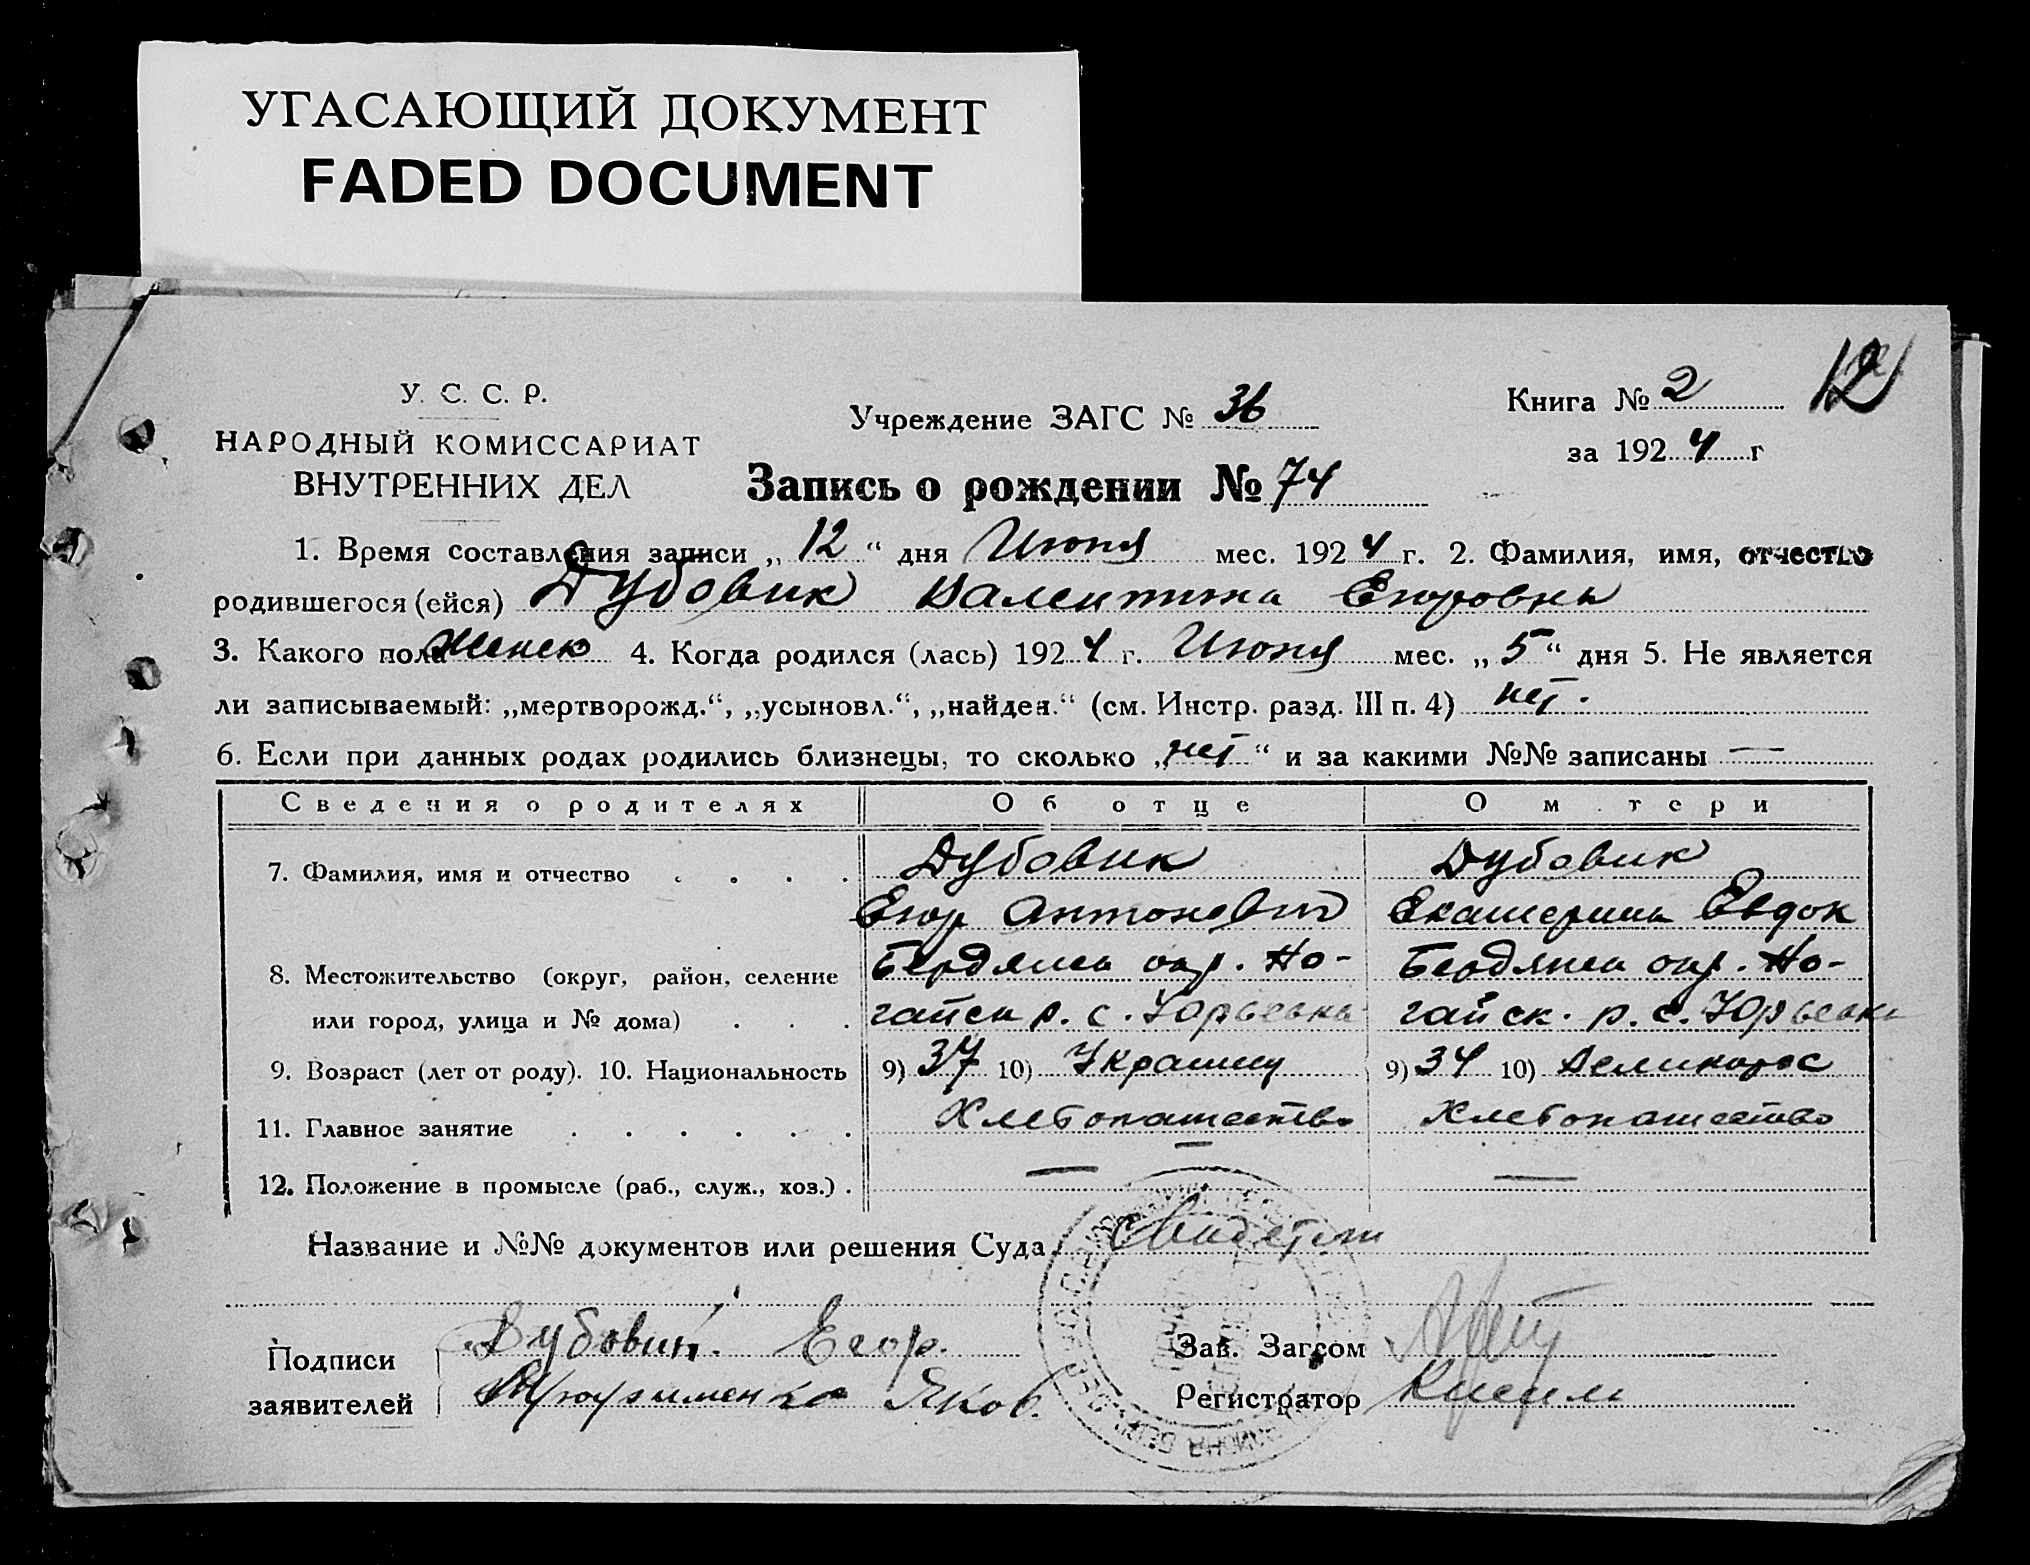 УГАСАЮЩИЙ ДОКУМЕНТ
FADED DOCUMENT
12
У. С. С. Р.
НАРОДНЫЙ КОМИССАРИАТ
ВНУТРЕННИХ ДЕЛ
Учреждение ЗАГС № 36
Книга № 2
за 1924 г
Запись о рождении № 74
1. Время составления записи „12“ дня Июня мес. 1924 г. 2. Фамилия, имя, отчество
родившегося (ейся) Дубовик Валентина Егоровна
3. Какого пола женск 4. Когда родился (лась) 1924 г. Июня мес. „5“ дня 5. Не является
ли записываемый: „мертворожд.“, „усыновл.“, „найден.“ (см. Инстр. разд. III п. 4) нет.
6. Если при данных родах родились близнецы, то сколько „нет“ и за какими №№ записаны —
Сведения о родителях Об отце О м тери
7. Фамилия, имя и отчество . . . . Дубовик Дубовик
Егор Антонович Екатерина Евдок
8. Местожительство (округ, район, селение Бердянск окр. Но- Бердянск окр. Но-
или город, улица и № дома) . . . гайск р. с. Юрьевка гайск. р. с. Юрьевка
9. Возраст (лет от роду). 10. Национальность 9) 37 10) Украинц 9) 34 10) Великорос
11. Главное занятие . . . . . . Хлебопашество Хлебопашество
12. Положение в промысле (раб., служ., хоз.) . — —
Название и №№ документов или решения Суда Свидетели
Подписи
заявителей
Дубовик Егор.
Яков.
Зав. Загсом
Регистратор